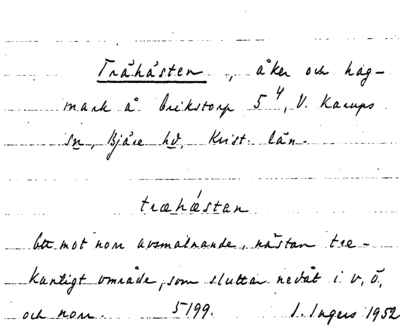 Trähästen, åker och hag-
mark å Erikstorp 5⁴, V. Karups
sn, Bjäre hd, Krist. län.
træhæstan
Ett mot norr avsmalnande, nästan tre-
kantigt område, som sluttar nedåt i v, ö,
och norr. 5199. I. Ingers 1952